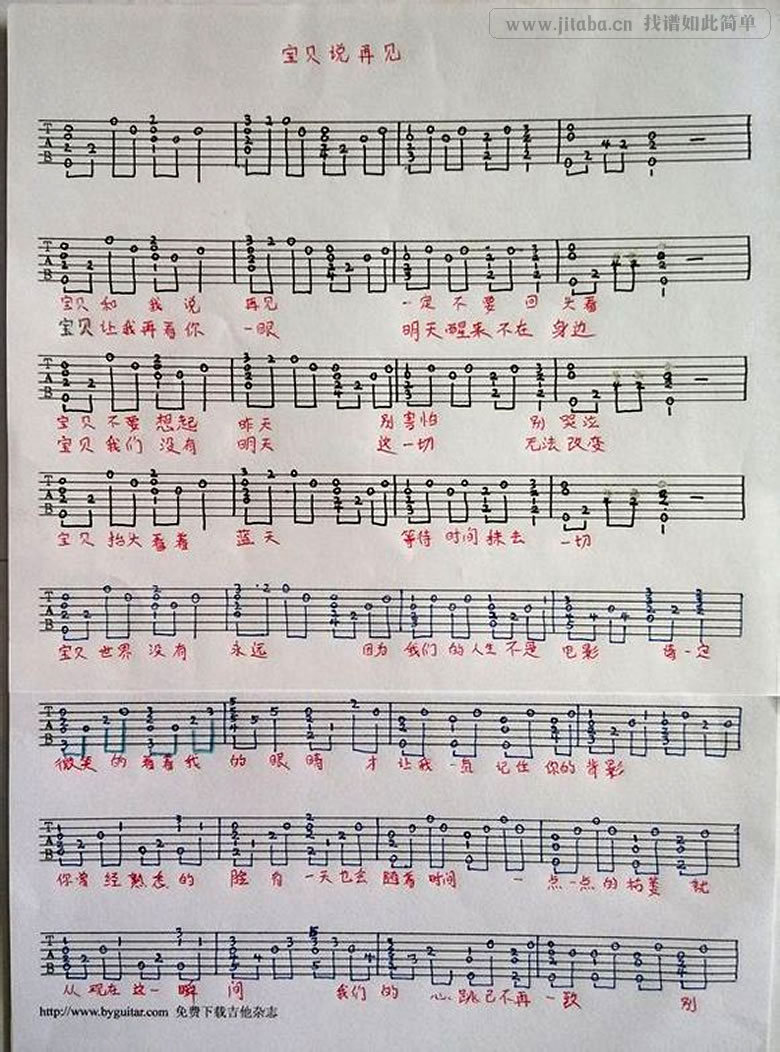 www.jitaba.cn 找谱如此简单
宝贝说再见
宝贝和我说 再见 一定不要回头看
宝贝让我再看你 一眼 明天醒来不在身边
宝贝不要想起 昨天 别害怕 别哭泣
宝贝我们没有 明天 这一切 无法改变
宝贝抬头看看 蓝天 等待时间抹去 一切
宝贝世界没有 永远 因为我们的人生不是 电影 请一定
微笑的看着我 的眼睛 才让我一气记住你的背影
你曾经熟悉的 脸有一天也会随着时间 一点一点的枯萎 就
从现在这一瞬间 我们的 心跳已不再一致 别
http://www.byguitar.com 免费下载吉他杂志